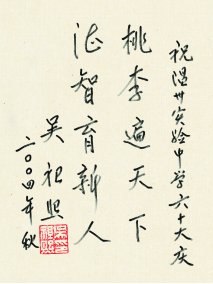 祝温州实验中学六十大庆
桃李遍天下
智育新人
吴祖熙
二〇〇四年秋